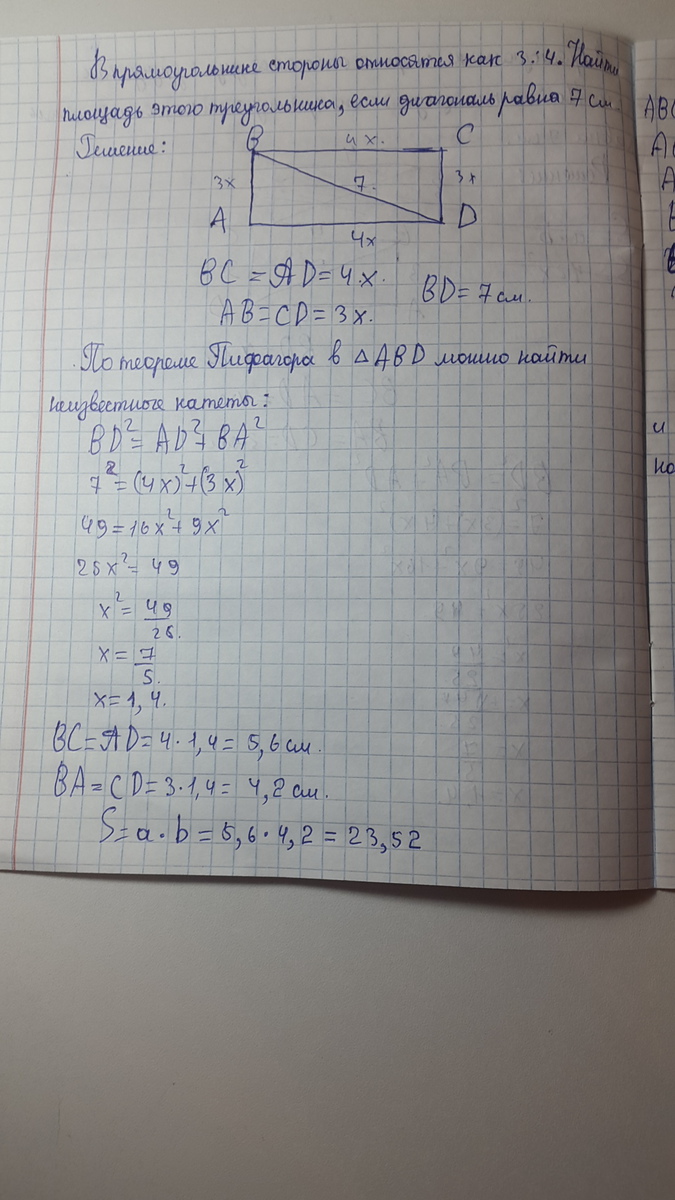 В прямоугольнике стороны относятся как 3:4. Найти
площадь этого треугольника, если диагональ равна 7 см
Решение:
B 4x. C
3x 7. 3x
A D
4x
BC = AD = 4x.
BD = 7 см.
AB = CD = 3x.
По теореме Пифагора в △ABD можно найти
неизвестные катеты:
BD² = AD² + BA²
7² = (4x)² + (3x)²
49 = 16x² + 9x²
25x² = 49
x² = 49/25.
x = 7/5.
x = 1,4.
BC = AD = 4 · 1,4 = 5,6 см.
BA = CD = 3 · 1,4 = 4,2 см.
S = a · b = 5,6 · 4,2 = 23,52